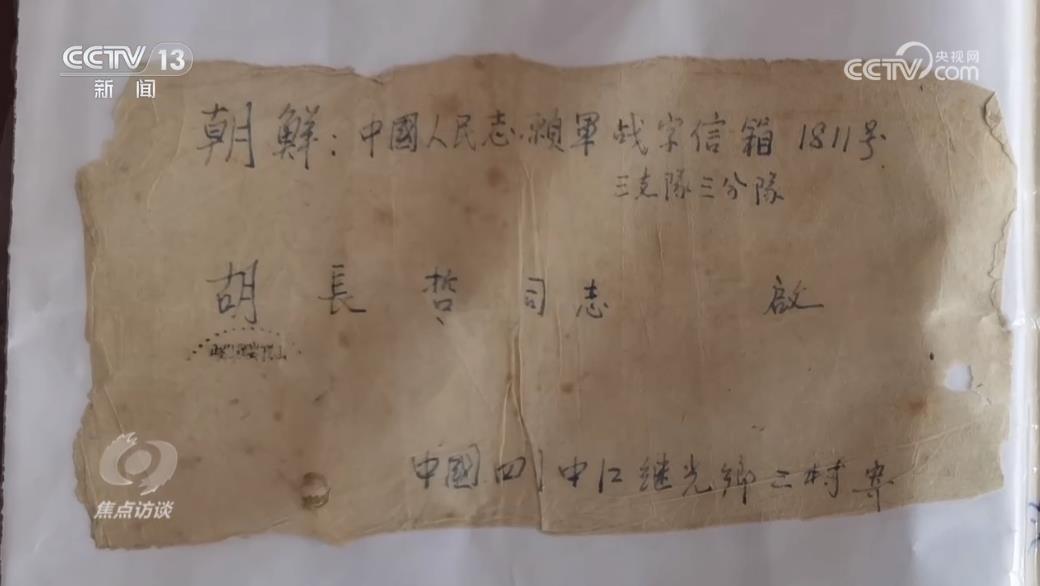 CCTV 13
新闻
央视网
CCTV.com
朝鮮：中國人民志願軍战字信箱1811号
三支隊三分隊
胡長哲同志 啟
中國四川中江继光鄉二村寄
焦点访谈